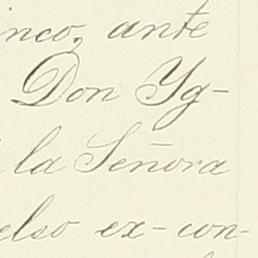 inco, ante
Don Yg-
la Señora
elso ex-con-